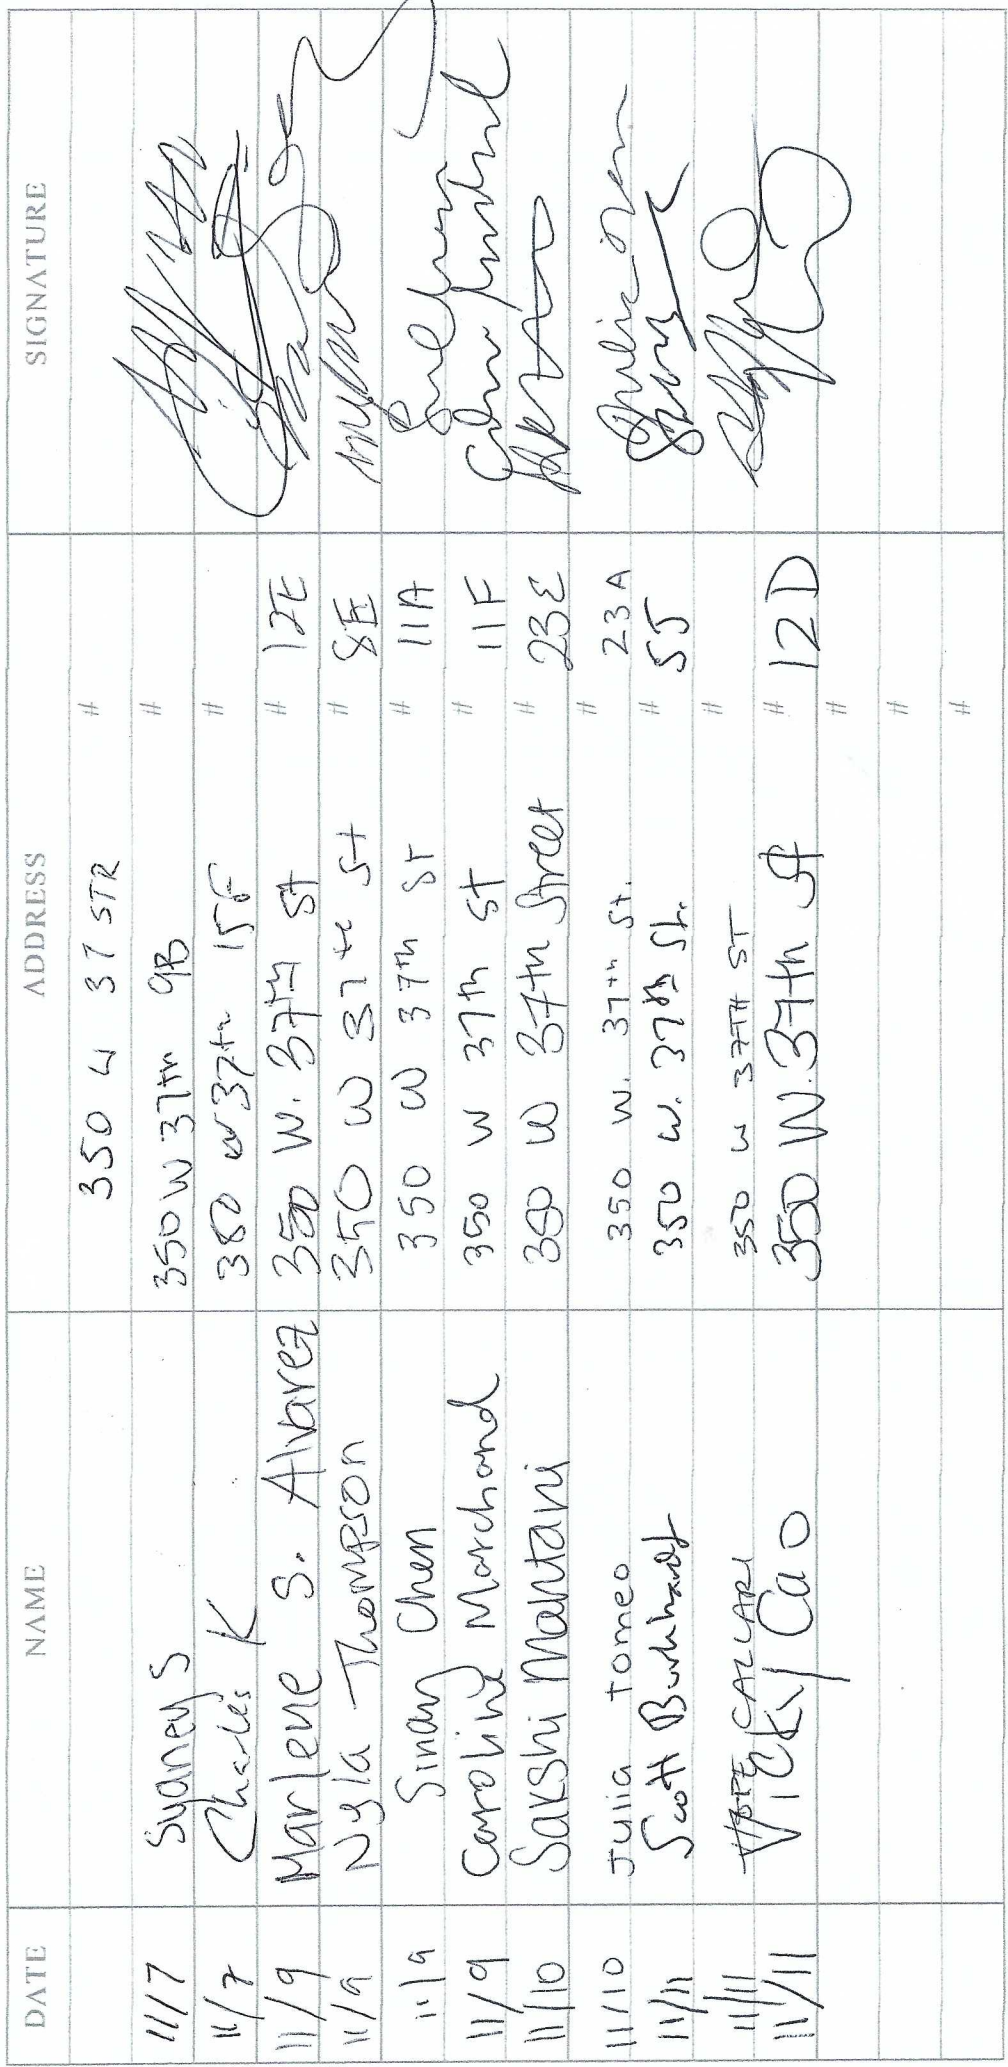 DATE NAME ADDRESS SIGNATURE
350 W 37 STR #
11/7 Sydney S 350 W 37th 9B #
11/7 Charles K 350 W 37th 15F #
11/9 Marlene S. Alvarez 350 W. 37th St # 12E
11/9 Nyla Thompson 350 W 37th St # 8E
11/9 Sinan Chen 350 W 37th ST # 11A
11/9 Caroline Marchand 350 W 37th St # 11F
11/10 Sakshi Mantani 350 W 37th Street # 23E
11/10 Julia Tomeo 350 W. 37th St. # 23A
11/11 Scott Burkhardt 350 W. 37th St. # 5J
11/11 HOPE CALLARI 350 W 37TH ST #
11/11 Vicky Cao 350 W. 37th St # 12D
#
#
#